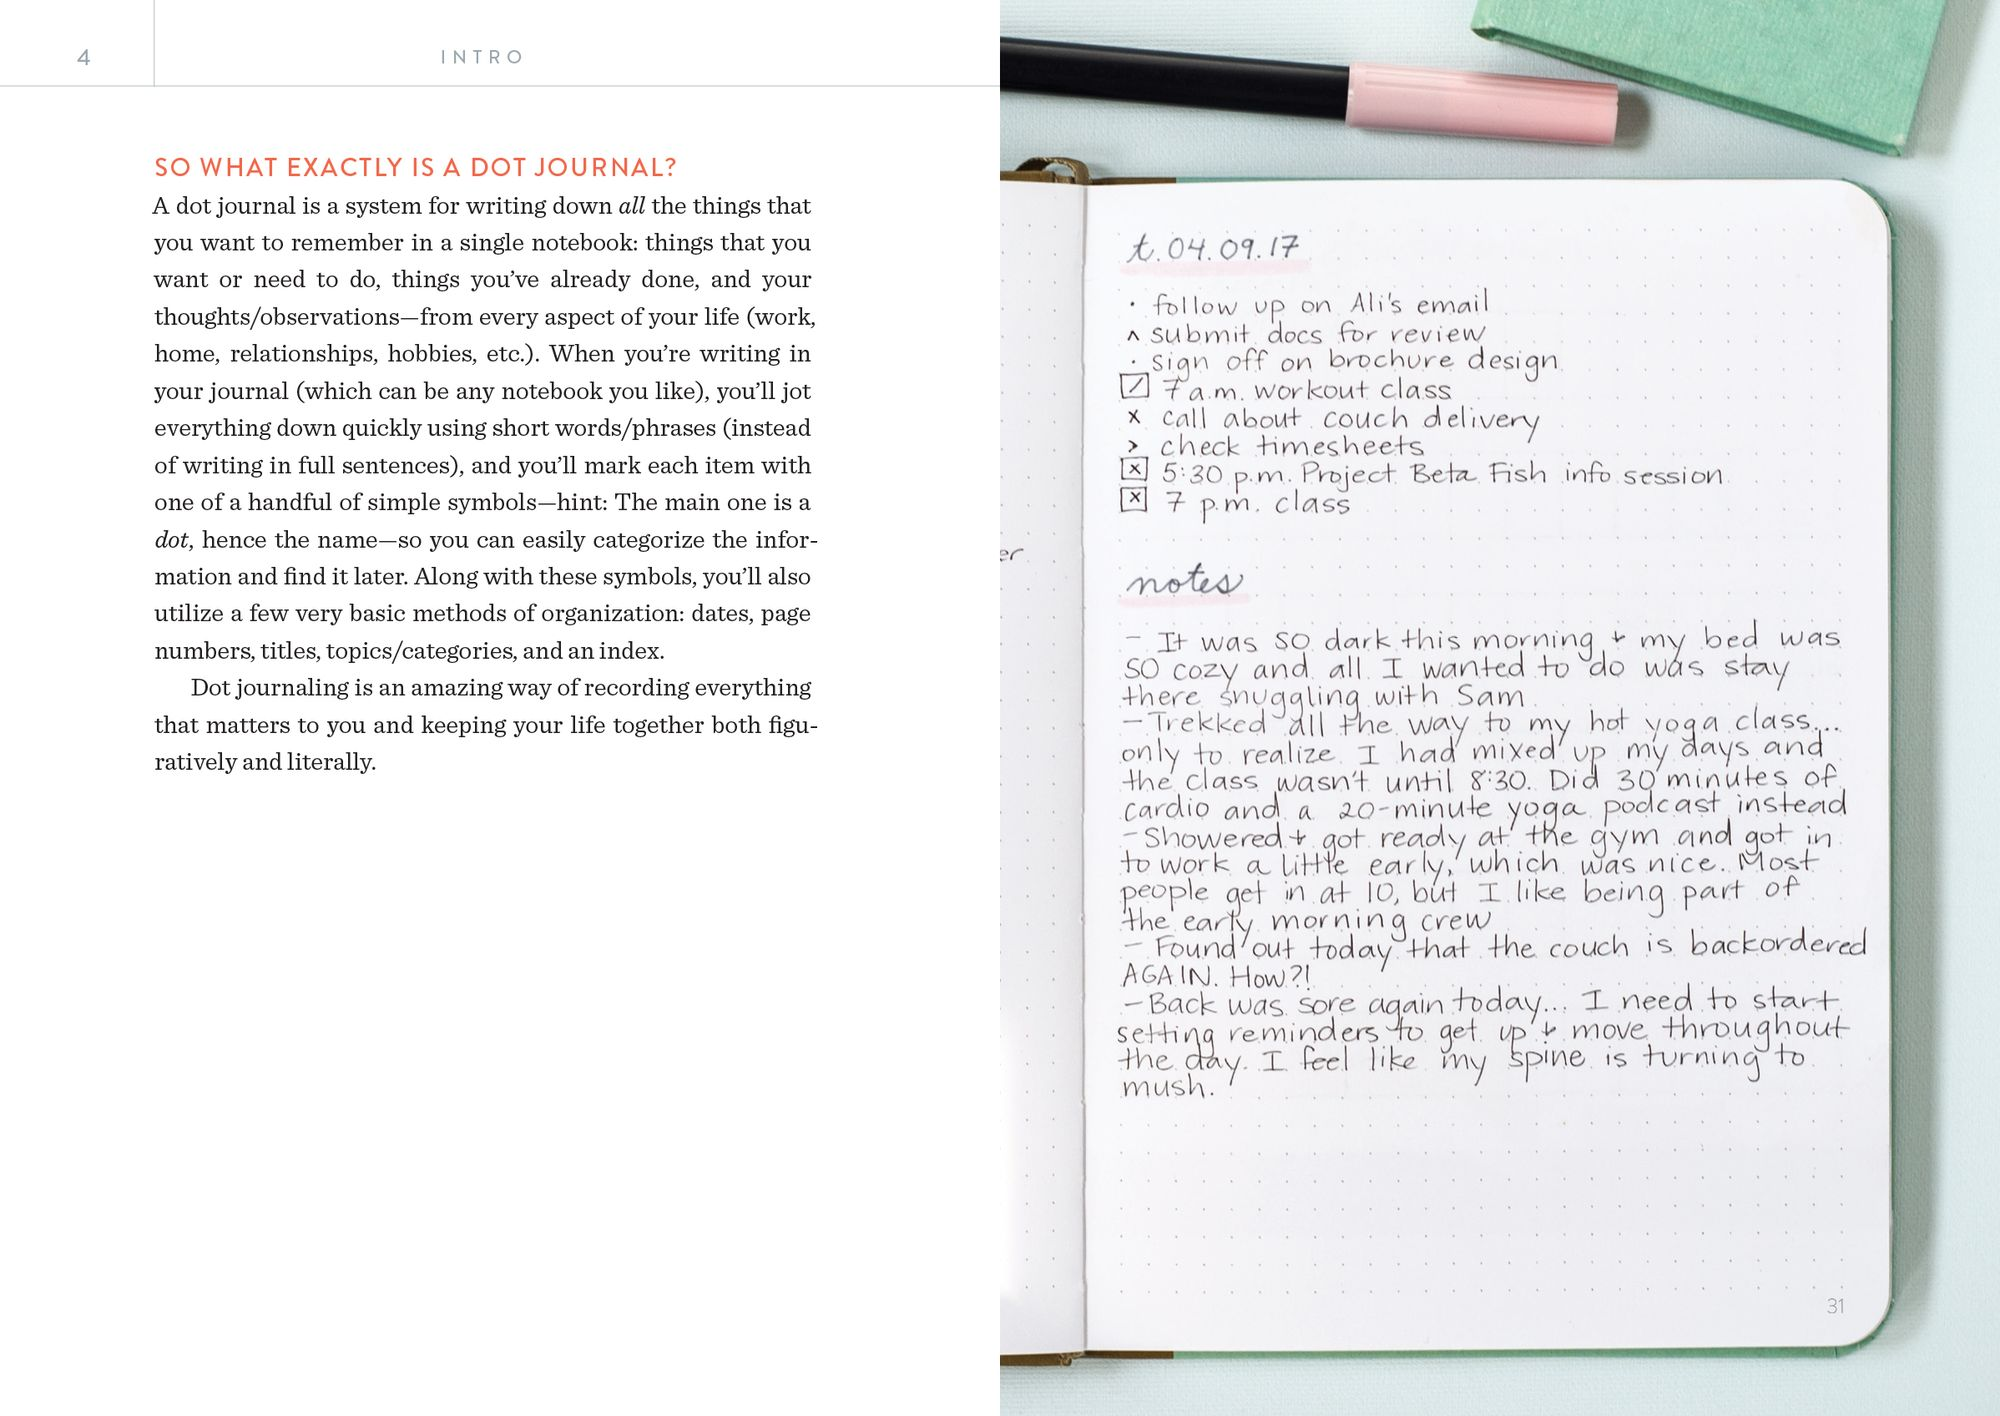 4
INTRO
SO WHAT EXACTLY IS A DOT JOURNAL?
A dot journal is a system for writing down all the things that
you want to remember in a single notebook: things that you
want or need to do, things you’ve already done, and your
thoughts/observations—from every aspect of your life (work,
home, relationships, hobbies, etc.). When you’re writing in
your journal (which can be any notebook you like), you’ll jot
everything down quickly using short words/phrases (instead
of writing in full sentences), and you’ll mark each item with
one of a handful of simple symbols—hint: The main one is a
dot, hence the name—so you can easily categorize the infor-
mation and find it later. Along with these symbols, you’ll also
utilize a few very basic methods of organization: dates, page
numbers, titles, topics/categories, and an index.
Dot journaling is an amazing way of recording everything
that matters to you and keeping your life together both figu-
ratively and literally.
er
t. 04.09.17
· follow up on Ali's email
^ submit docs for review
· sign off on brochure design
☑ 7 a.m. workout class
x call about couch delivery
> check timesheets
☒ 5:30 p.m. Project Beta Fish info session
☒ 7 p.m. class
notes
– It was SO dark this morning + my bed was
SO cozy and all I wanted to do was stay
there snuggling with Sam
– Trekked all the way to my hot yoga class...
only to realize I had mixed up my days and
the class wasn't until 8:30. Did 30 minutes of
cardio and a 20-minute yoga podcast instead
– Showered + got ready at the gym and got in
to work a little early, which was nice. Most
people get in at 10, but I like being part of
the early morning crew
– Found out today that the couch is backordered
AGAIN. How?!
– Back was sore again today... I need to start
setting reminders to get up + move throughout
the day. I feel like my spine is turning to
mush.
31